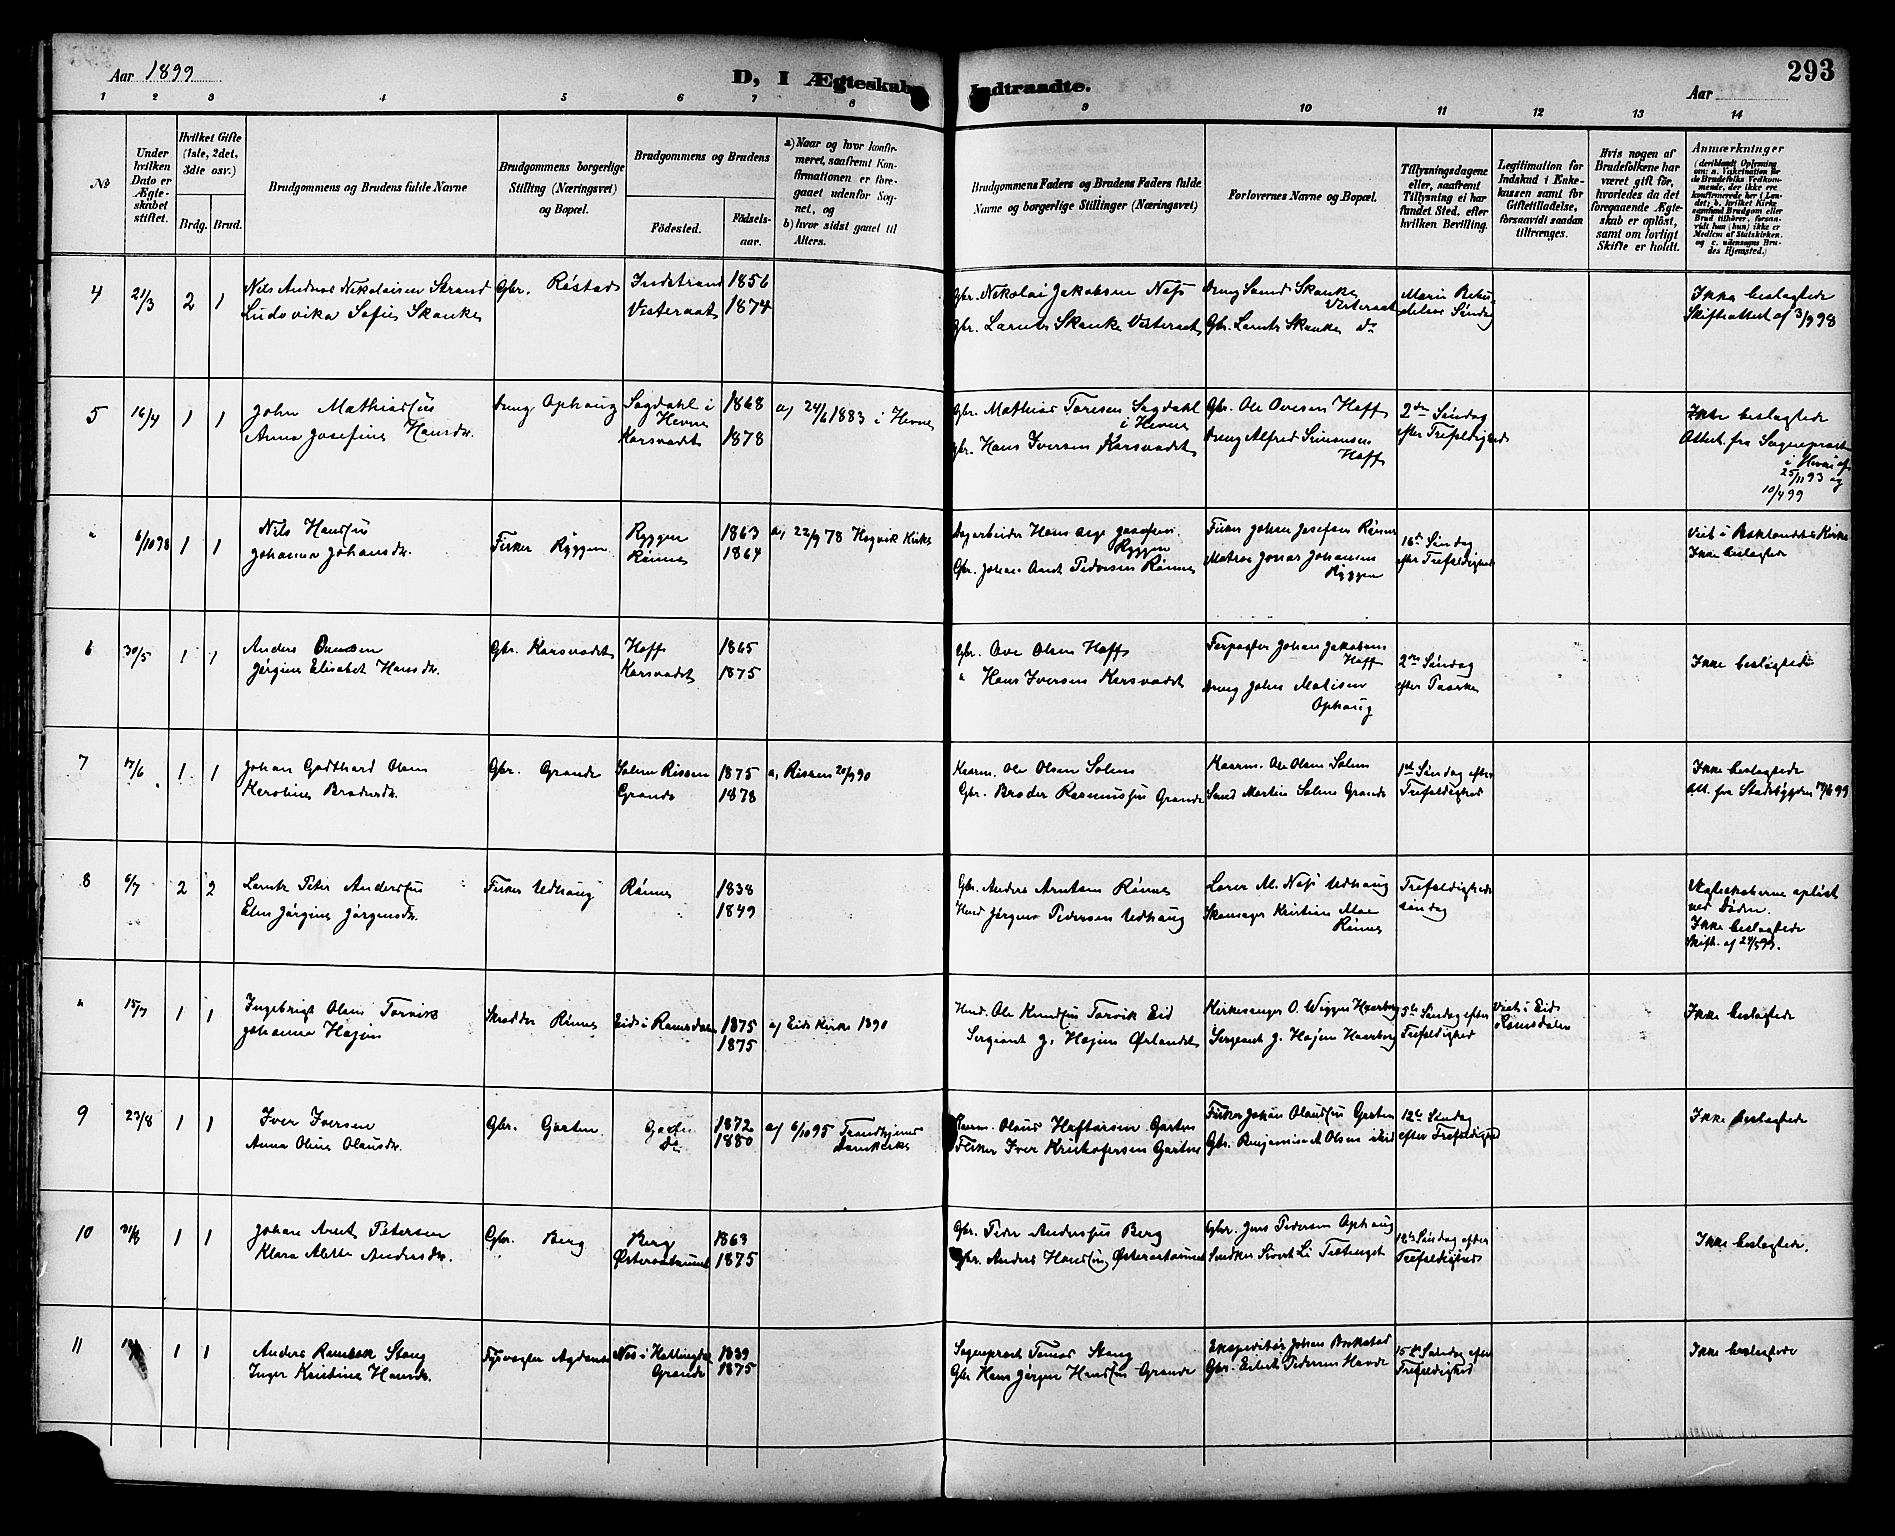 Aar 1899
D, I Ægteskab
Indtraadte.
Aar
293
1 2 3 4 5 6 7 8 9 10 11 12 13 14
No
Under hvilken Dato er Ægteskabet stiftet.
Hvilket Gifte (1ste, 2det, 3die osv.)
Brdg. Brud.
Brudgommens og Brudens fulde Navne
Brudgommens borgerlige Stilling (Næringsvei) og Bopæl.
Brudgommens og Brudens
Födested.
Födselsaar.
a) Naar og hvor konfirmeret, saafremt Konfirmationen er foregaaet udenfor Sognet, og
b) hvor sidst gaaet til Alters.
Brudgommens Faders og Brudens Faders fulde Navne og borgerlige Stillinger (Næringsvei)
Forlovernes Navne og Bopæl.
Tillysningsdagene eller, saafremt Tillysning ei har fundet Sted, efter hvilken Bevilling.
Legitimation for Indskud i Enkekassen samt for Giftetilladelse, forsaavidt saadan tiltrænges.
Hvis nogen af Brudefolkene har været gift för, hvorledes da det foregaaende Ægteskab er oplöst, samt om lovligt Skifte er holdt.
Anmærkninger
4 21/3 2 1
Nils Andreas Nikolaisen Strand Gbr. Röstad Indstrand 1856
Ludovika Sofie Skanke Visteraat 1874
Gbr. Nikolai Jakobsen Næss
Gbr. Larnts Skanke Visteraat
Gbr. Larnts Skanke do
Ikke beslægtede
Skifteattest af 3/9 98
5 16/4 1 1
John Mathiassen Ophaug Sagdahl i Hevne 1868 a) 24/6 1883 i Hevne
Anna Josefine Hansdr. Karsvadet 1878
Gbr. Mathias Toresen Sagdahl i Hevne
Gbr. Hans Iversen Karsvadet
Gbr. Ole Ovesen Hoff
Ung Alfred Simonsen Hoff
2den Søndag efter Trefoldighed
Ikke beslægtede
Attest. fra Sognepræst i Hevne af 25/11 93 og 10/4 99
" 6/10 98 1 1
Nils Hanssen Fisker Ryggen Ryggen 1863 a) 22/9 78
Johanna Johansdr. Rønne 1864
Ryggen
Gbr. Johan Arnt Pedersen Rønne
Fisker Johan Josefsen Rønne
Matros Jonas Johansen Ryggen
16de Søndag efter Trefoldighed
Ikke beslægtede
6 30/5 1 1
Anders Ovesen Gbr. Karsvadet Hoff 1865
Jørgine Elisabet Hansdr. Karsvadet 1875
Gbr. Ove Olsen Hoff
" Hans Iversen Karsvadet
Johan Jakobsen Hoff
Ung John Matisen Ophaug
2den Søndag efter Paaske
Ikke beslægtede
7 17/6 1 1
Johan Godthard Olsen Gbr. Grande Solem Rissen 1875 a) Rissen 20/9 90
Karoline Brodersdr. Grande 1878
Kaarm. Ole Olsen Solem
Gbr. Broder Rasmussen Grande
Kaarm. Ole Olsen Solem
Martin Solem Grande
1ste Søndag efter Trefoldighed
Ikke beslægtede
Att. fra Stadsbygden 99
8 6/7 2 2
Larnts Peter Anderssen Fisker Udhaug Rønne 1838
Elen Jørgine Jørgensdr. 1849
Gbr. Andreas Arntsen Rønne
Jørgen Pedersen Udhaug
Næss Udhaug
Skomager Kristian Moe Rønne
Trefoldighedssøndag
Ægteskaberne opløst ved Døden.
Ikke beslægtede
" 15/7 1 1
Ingebrigt Olsen Torvik Skrædder Rønne Eid i Romsdalen 1875 a) Eids Kirke 1890
Johanna Højem 1875
Husm. Ole Knudssen Torvik Eid
Sergeant J. Højem Ørlandet
Kirkesanger O. Wigger Haarberg
Sergeant J. Højem Haarberg
5te Søndag efter Trefoldighed
Viet i Eid Romsdalen
Ikke beslægtede
9 23/8 1 1
Iver Iversen Gbr. Garten Garten 1872 a) 6/10 95 Trondhjems Domkirke
Anna Oline Olausdr. Do 1880
Kaarm. Olaus Haftorsen Garten
Fisker Iver Kristofersen Garten
Fisker Johan Olaussen Garten
Gbr. Benjamin A Olsen ibid
12te Søndag efter Trefoldighed
Ikke beslægtede
10 31/8 1 1
Johan Arnt Petersen Gbr. Berg Berg 1863
Klara Alette Andersdr. 1875
Gbr. Peder Anderssen Berg
Gbr. Anders Hanssen
Gbr. Jens Pedersen Ophaug
12te Søndag efter Trefoldighed
Ikke beslægtede.
11 1 1
Anders Rambæk Stang Fyrvogter Agdenes Næs i Hallingdal 1839
Inger Kristine Hansdr. Grande 1875
Sognepræst Tomas Stang
Gbr Hans Jørgen Hanssen Grande
Ekspeditør Johan Brekstad
Gbr. Eilert Pedersen Hovde
15de Søndag efter Trefoldighed
Ikke beslægtede